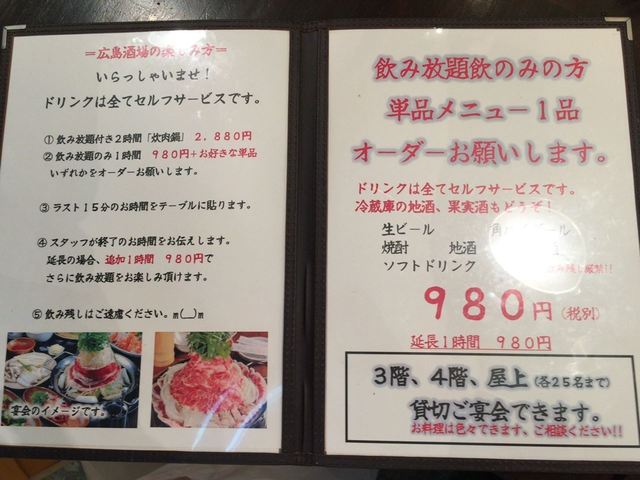 ＝広島酒場の楽しみ方＝
いらっしゃいませ！
ドリンクは全てセルフサービスです。
① 飲み放題付き２時間「炊肉鍋」 ２，８８０円
② 飲み放題のみ１時間 ９８０円＋お好きな単品
いずれかをオーダーお願いします。
③ ラスト１５分のお時間をテーブルに貼ります。
④ スタッフが終了のお時間をお伝えします。
延長の場合、追加１時間 ９８０円で
さらに飲み放題をお楽しみ頂けます。
⑤ 飲み残しはご遠慮ください。m(__)m
宴会のイメージです。
飲み放題飲のみの方
単品メニュー１品
オーダーお願いします。
ドリンクは全てセルフサービスです。
冷蔵庫の地酒、果実酒もどうぞ！
生ビール 角ハイボール
焼酎 地酒
ソフトドリンク 飲み残し厳禁!!
９８０円（税別）
延長１時間 ９８０円
３階、４階、屋上（各２５名まで）
貸切ご宴会できます。
お料理は色々できます、ご相談ください!!